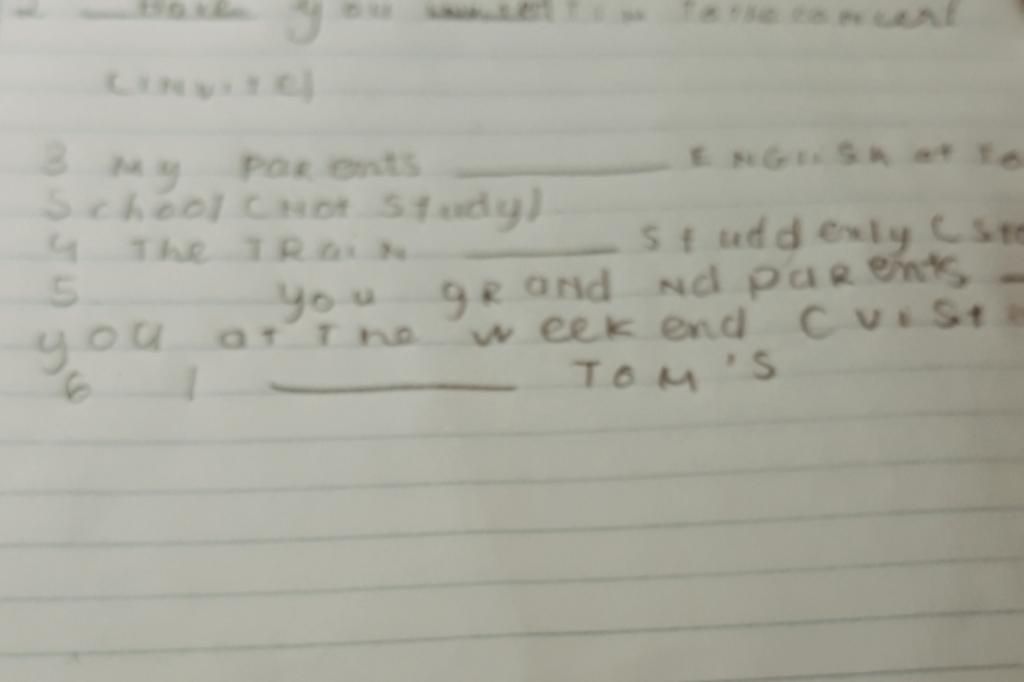 2 ____ Have you Tim to the concert
(invite)
3 My parents ______ ENGLISH at
School (Not Study)
4 The TRain ______ studdenly (st
5 you gRaNd Nd paRents
you at The week end (Visit
6 I ______ TOM'S